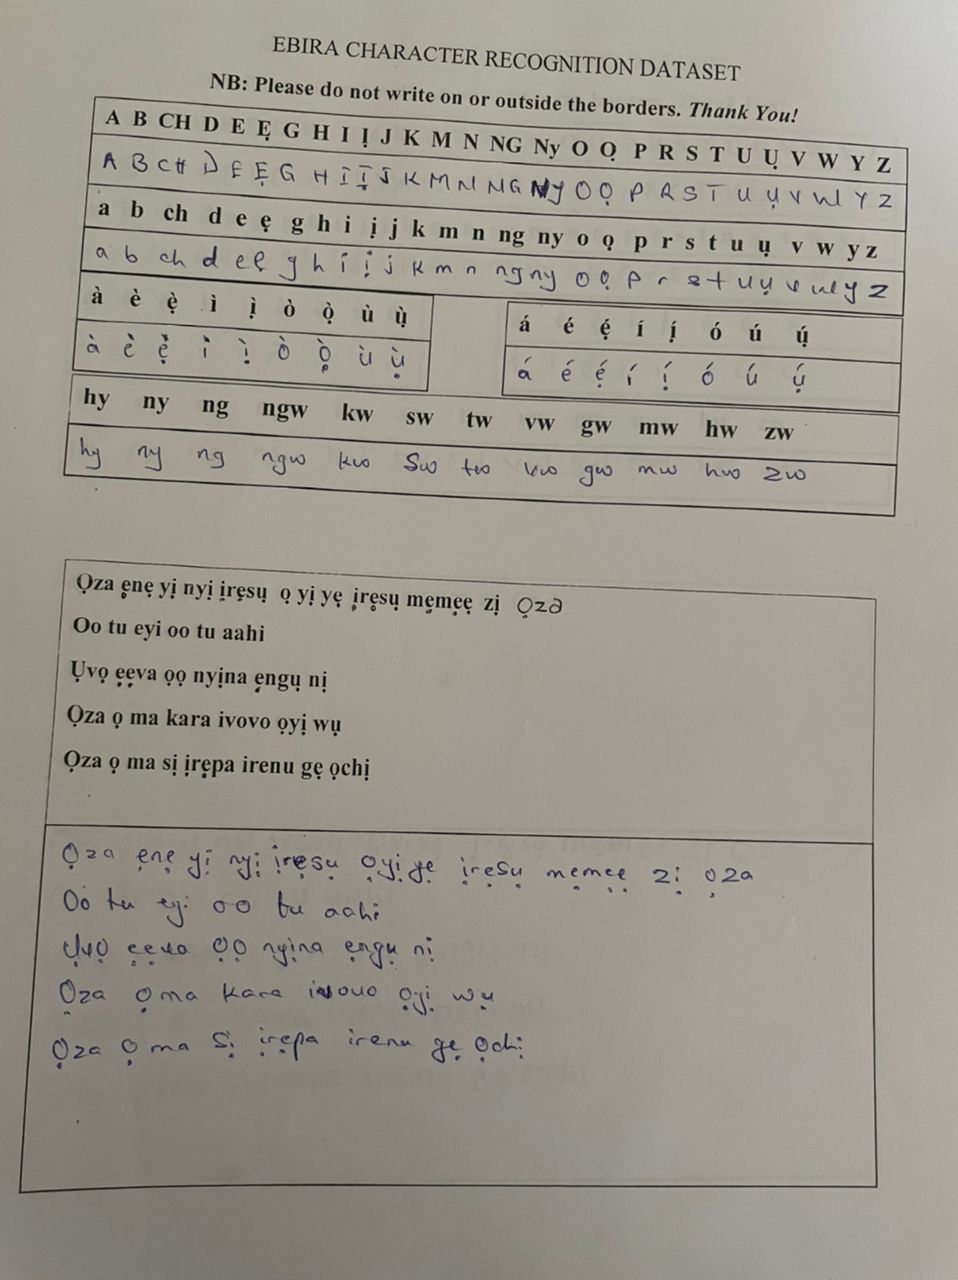 EBIRA CHARACTER RECOGNITION DATASET
NB: Please do not write on or outside the borders. Thank You!
A B CH D E Ẹ G H I Ị J K M N NG Ny O Ọ P R S T U Ụ V W Y Z
A B CH D E Ẹ G H I Ị J K M N NG NY O Ọ P R S T U Ụ V W Y Z
a b ch d e ẹ g h i ị j k m n ng ny o ọ p r s t u ụ v w y z
a b ch d e ẹ g h i ị j k m n ng ny o ọ p r s t u ụ v w y z
à è ẹ̀ ì ị̀ ò ọ̀ ù ụ̀
à è ẹ̀ ì ị̀ ò ọ̀ ù ụ̀
á é ẹ́ í ị́ ó ú ụ́
á é ẹ́ í ị́ ó ú ụ́
hy ny ng ngw kw sw tw vw gw mw hw zw
hy ny ng ngw kw sw tw vw gw mw hw zw
Ọza ẹnẹ yị nyị ịrẹsụ ọ yị yẹ ịrẹsụ mẹmẹẹ zị ọza
Oo tu eyi oo tu aahi
Ụvọ ẹẹva ọọ nyịna ẹngụ nị
Ọza ọ ma kara ivovo ọyị wụ
Ọza ọ ma sị ịrẹpa irenu gẹ ọchị
Ọza ẹnẹ yị nyị ịrẹsụ ọyị yẹ ịrẹsụ mẹmẹẹ zị ọza
Oo tu eyi oo tu aahi
Ụvọ ẹẹva ọọ nyịna ẹngụ nị
Ọza ọ ma kara ivovo ọyị wụ
Ọza ọ ma sị ịrẹpa irenu gẹ ọchị